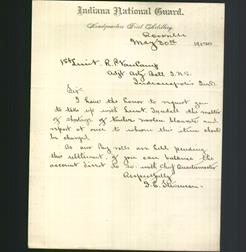 Indiana National Guard.
Headquarters First Artillery.
May 30th
1st Lieut. R. P. VanCamp
Adjt Arty Batt I.N.G.
Indianapolis Ind
Sir-
I have the honor to request you
to take up with Lieut. the matter
of shortage of woolen blankets and
report at once to whom this item should be
charged.
As our Pay rolls are held pending
this settlement, if you can balance the
account direct do so with Chief Quartermaster
Respectfully